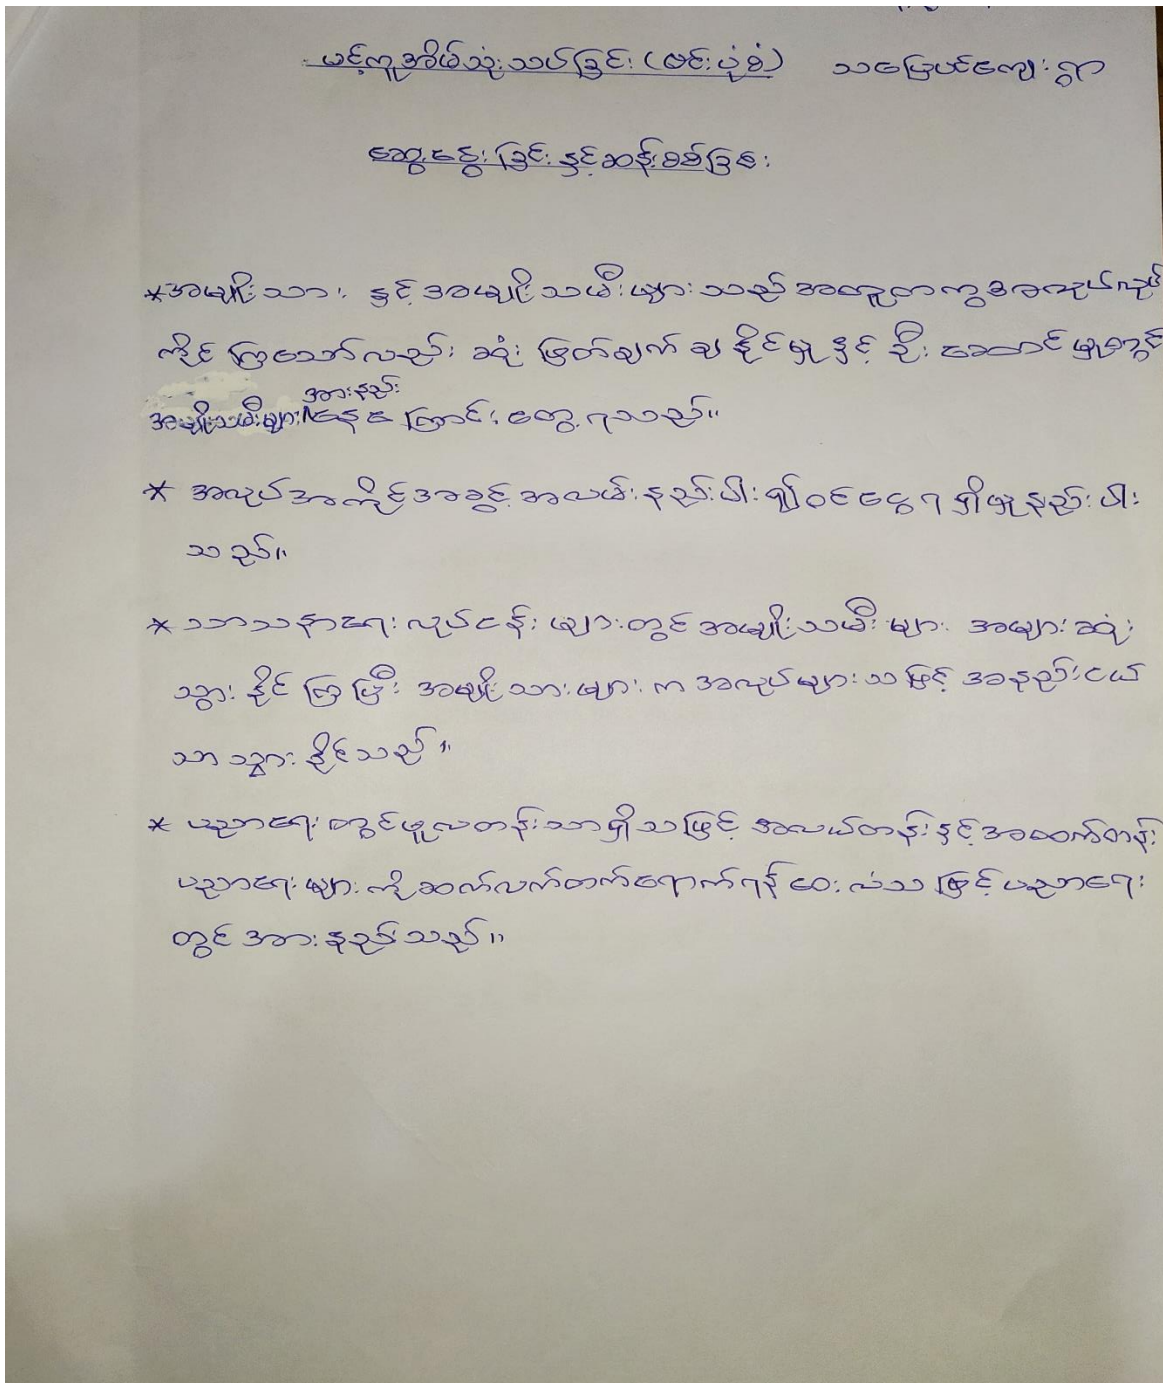 ယင့်ကူအိမ်သုံးသပ်ခြင်း (ဇင်းပုံစံ) သပြေပင်ကျေးရွာ
ဆွေးနွေးခြင်းနှင့်ဆန်းစစ်ခြင်း
*အမျိုးသား နှင့် အမျိုးသမီးများသည် အတူတကွအလုပ်လုပ်
ကိုင်ကြသော်လည်း ဆုံးဖြတ်ချက်ချနိုင်မှုနှင့် ဦးဆောင်မှုတွင်
အမျိုးသမီးများ အားနည်း နေကြောင်းတွေ့ရသည်။
* အလုပ်အကိုင်အခွင့်အလမ်းနည်းပါး၍ဝင်ငွေရရှိမှုနည်းပါး
သည်။
* သာသနာရေးလုပ်ငန်းများတွင်အမျိုးသမီးများ အများဆုံး
သွားနိုင်ကြပြီး အမျိုးသားများက အလုပ်များသဖြင့် အနည်းငယ်
သာသွားနိုင်သည်။
* ပညာရေးတွင်မူလတန်းသာရှိသဖြင့် အလယ်တန်းနှင့်အထက်တန်း
ပညာရေးများကိုဆက်လက်တက်ရောက်ရန်ဝေးလံသဖြင့်ပညာရေး
တွင်အားနည်းသည်။